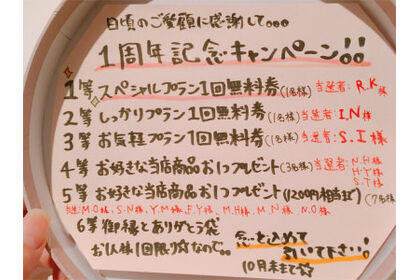 日頃のご愛顧に感謝して。。。
1周年記念キャンペーン!!
1等 スペシャルプラン1回無料券(1名様) 当選者:R.K様
2等 しっかりプラン1回無料券(1名様) 当選者:I.N様
3等 お気軽プラン1回無料券(1名様) 当選者:S.I様
4等 お好きな当店商品お1つプレゼント(3名様) 当選者:N.H様
H.Y様
S.T様
5等 お好きな当店商品お1つプレゼント(1200円相当まで)(7名様)
当選:M.O様、S.N様、Y.M様、F.Y様、M.H様、M.N様、N.O様
6等 御縁とありがとう袋
お1人様1回限り☆なので。。
念を込めて
引いて下さい!
10月末まで☆